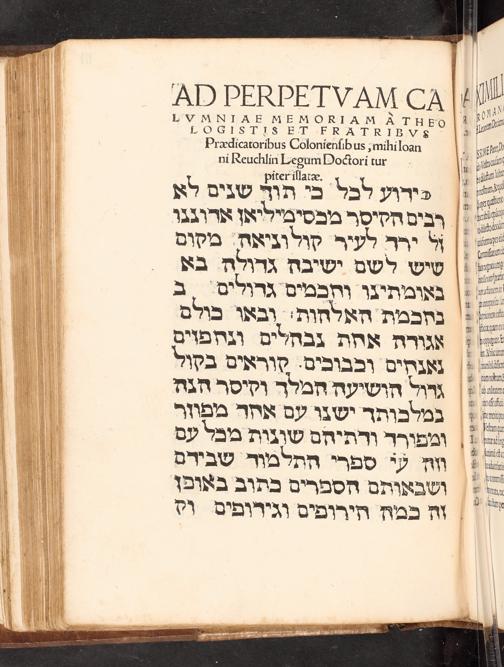 AD PERPETVAM CA
LVMNIAE MEMORIAM À THEO
LOGISTIS ET FRATRIBVS
Prædicatoribus Coloniensibus, mihi Ioan
ni Reuchlin Legum Doctori tur
piter illatæ.
ידוע לכל כי תוך שנים לא
רבים הקיסר מכסימיליאן אדוננו
זל ירד לעיר קולוניאה מקום
שיש לשם ישיבה גדולה בא
באומתינו וחכמים גדולים ב
בחכמת האלהות: ובאו כולם
אגורה אחת נבהלים ונחפזים
נאנחים וכבוכים. קוראים בקול
גדול הושיעה המלך וקיסר הנה
במלכותך ישנו עם אחד מפוזר
ומפורד ודתיהם שונות מכל עם
וזה עי ספרי התלמוד שבידם
ושבאותם הספרים כתוב באופן
זה כמה חירופים וגידופים וק